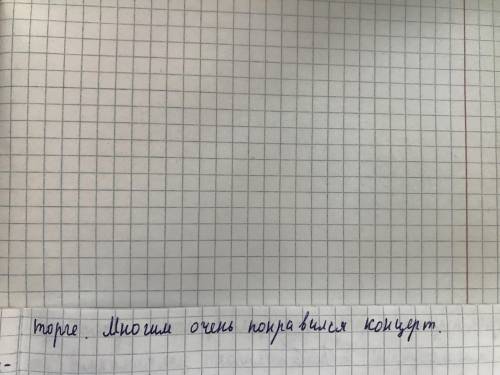 торге. Многим очень понравился концерт.